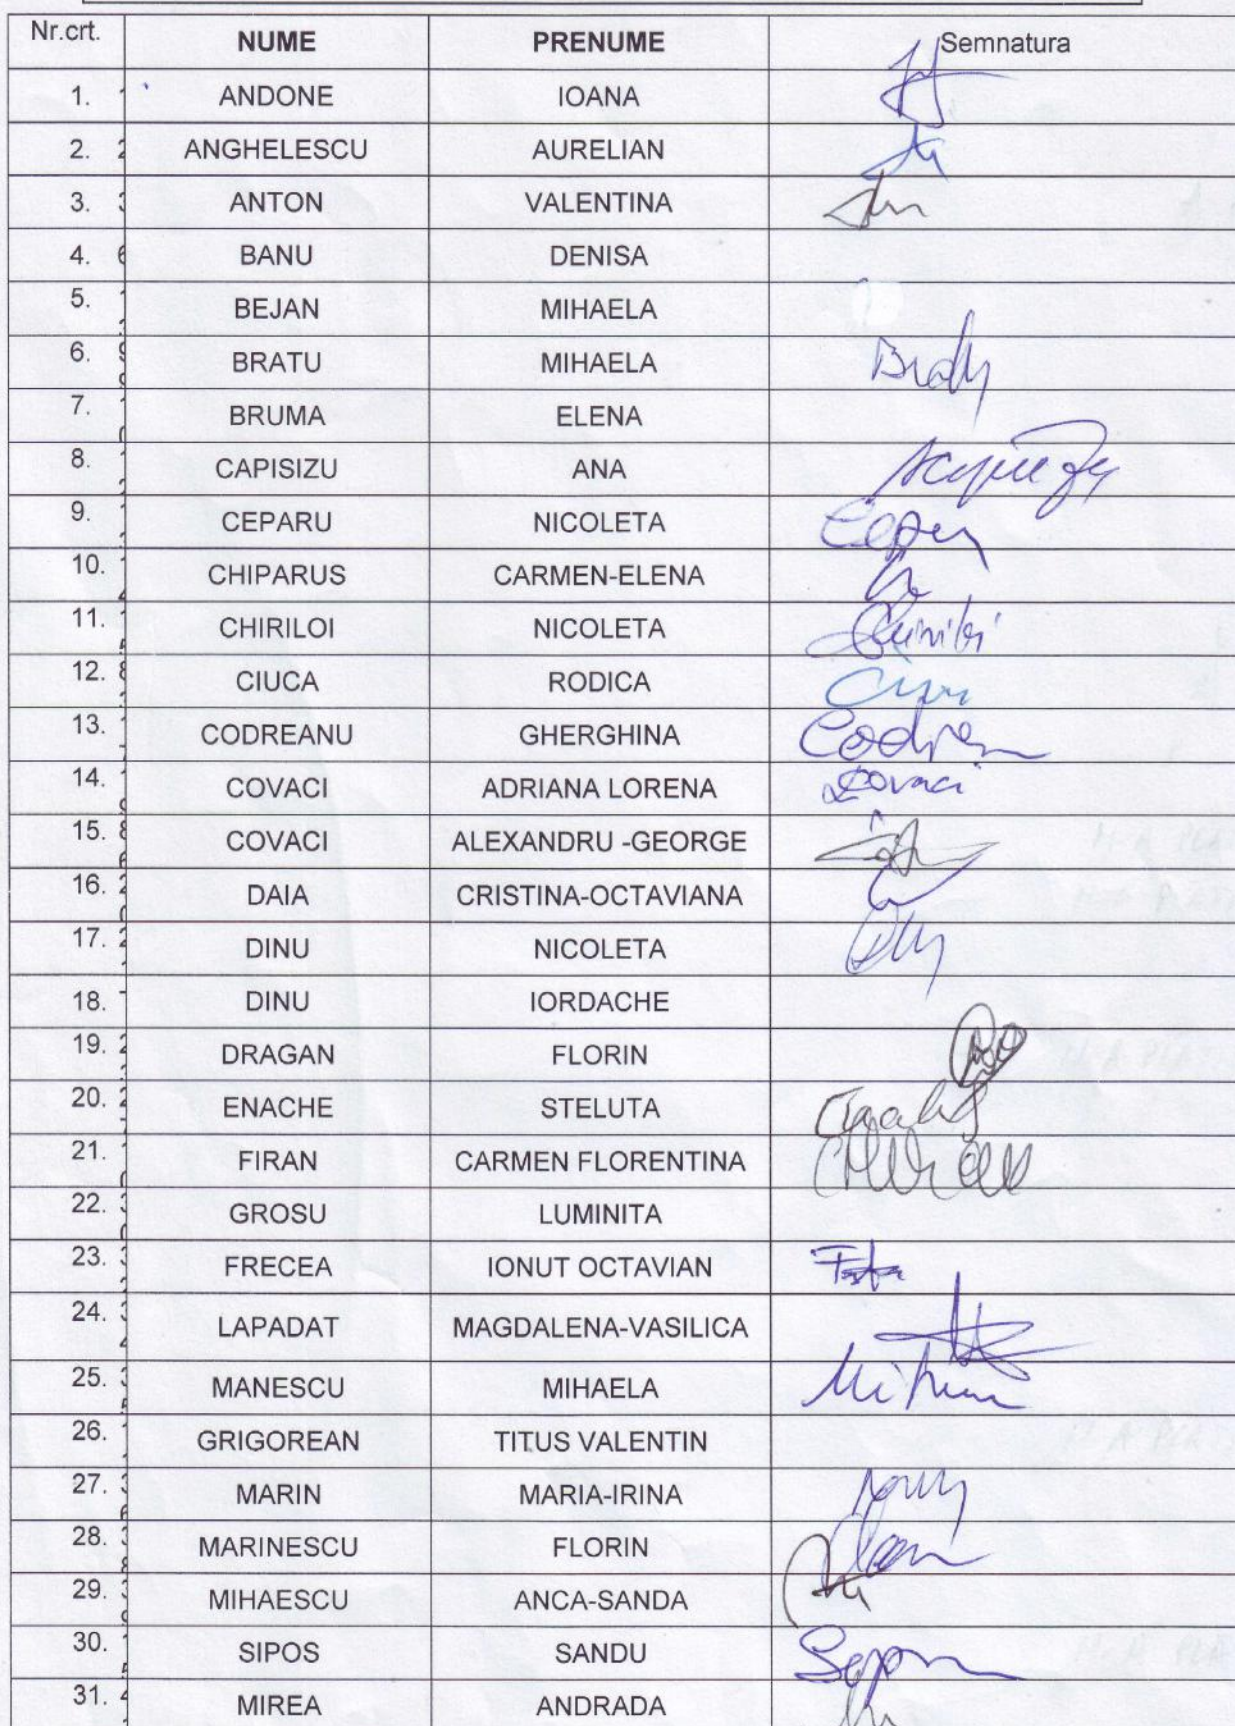 Nr.crt. NUME PRENUME Semnatura
1. ANDONE IOANA
2. ANGHELESCU AURELIAN
3. ANTON VALENTINA
4. BANU DENISA
5. BEJAN MIHAELA
6. BRATU MIHAELA
7. BRUMA ELENA
8. CAPISIZU ANA
9. CEPARU NICOLETA
10. CHIPARUS CARMEN-ELENA
11. CHIRILOI NICOLETA
12. CIUCA RODICA
13. CODREANU GHERGHINA
14. COVACI ADRIANA LORENA Covaci
15. COVACI ALEXANDRU -GEORGE
16. DAIA CRISTINA-OCTAVIANA
17. DINU NICOLETA
18. DINU IORDACHE
19. DRAGAN FLORIN
20. ENACHE STELUTA
21. FIRAN CARMEN FLORENTINA
22. GROSU LUMINITA
23. FRECEA IONUT OCTAVIAN
24. LAPADAT MAGDALENA-VASILICA
25. MANESCU MIHAELA
26. GRIGOREAN TITUS VALENTIN
27. MARIN MARIA-IRINA
28. MARINESCU FLORIN
29. MIHAESCU ANCA-SANDA
30. SIPOS SANDU
31. MIREA ANDRADA